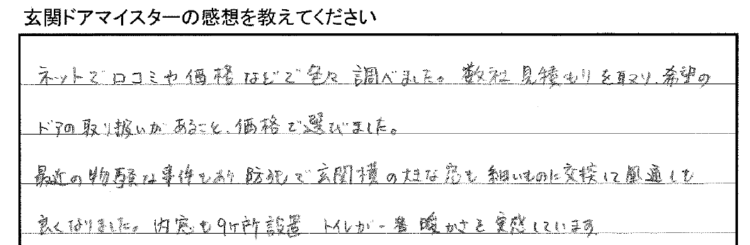 玄関ドアマイスターの感想を教えてください
ネットで口コミや価格などで色々調べました。数社見積もりを取り、希望の
ドアの取り扱いがあること、価格で選びました。
最近の物騒な事件もあり防犯で玄関横の大きな窓も細いものに交換して風通しも
良くなりました。内窓も9ヶ所設置 トイレが一番暖かさを実感しています